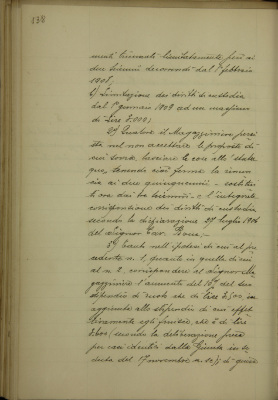 138
menti triennali limitatamente però ai
due trienni decorrendi dal 1° febbraio
1908,
b) Limitazione dei diritti di custodia
dal 1° gennaio 1908 ad un massimo
di Lire 8.000;
2°) Qualora il Mugazzinieri persi
sta nel non accettare le proposte di
cui sovra, lasciare le cose allo statu
quo, tenendo così ferma la rinun
cia ai due quinquenni - sostitui
ti ora dai tre trienni - e l'integrale
corresponsione dei diritti di custodia
secondo la dichiarazione 29 luglio 1906
del Signor Cav.
3°) Tanto nell'ipotesi di cui al pre
cedente n. 1, quanto in quella di cui
al n. 2, corrispondere al Signor Ma
gazziniere l'aumento del 10° del suo
stipendio di ruolo che di Lire 3500, in
aggiunta allo stipendio di cui effet
tivamente egli fruisce, che è di Lire
secondo la deliberazione presa
per casi identici dalla Giunta in se
duta del 17 novembre di guisa